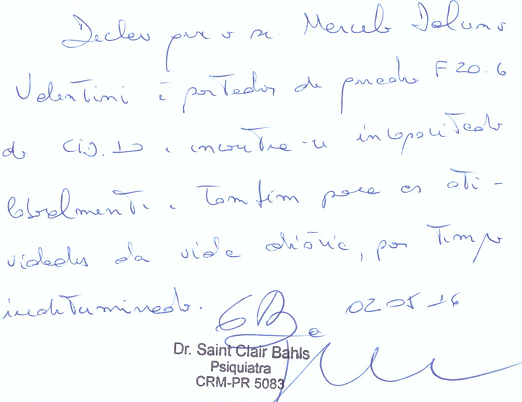 Declaro que o sr. Marcelo
Valentini é portador de quadro F 20.6
do CID.10 e encontra-se incapacitado
laboralmente e também para as ati-
vidades da vida diária, por tempo
indeterminado.
02 05 16
Dr. Saint Clair Bahls
Psiquiatra
CRM-PR 5083